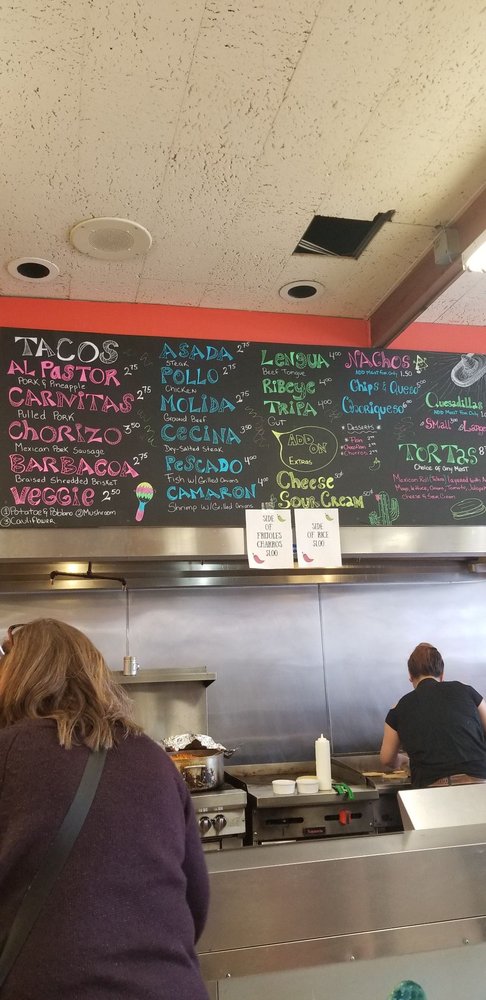 TACOS
AL PASTOR 2.75
PORK & PINEAPPLE
CARNITAS 2.75
Pulled PORK
CHORIZO 3.50
MEXICAN PORK SAUSAGE
BARBACOA 2.75
Braised Shredded Brisket
VEGGIE 2.50
① Potatoe & Poblano ② Mushroom
③ Cauliflower
ASADA 2.75
Steak
POLLO 2.75
CHICKEN
MOLIDA 2.75
Ground Beef
CECINA 3.50
Dry-Salted Steak
PESCADO 4.00
Fish w/ Grilled Onions
CAMARON 4.00
Shrimp w/ Grilled Onions
LENGUA 4.00
Beef Tongue
RIBEYE 4.00
TRIPA 4.00
GUT
ADD ON
EXTRAS
CHEESE
SOUR CREAM
NACHOS
ADD MEAT For Only 1.50
CHIPS & QUESO
CHORIQUESO
DESSERTS
Flan
Churros
QUESADILLAS
ADD MEAT For Only
SMALL
TORTAS
Choice of Any Meat
Cheese & Sour Cream
SIDE
OF
FRIJOLES
CHARROS
$1.00
SIDE
OF RICE
$1.00